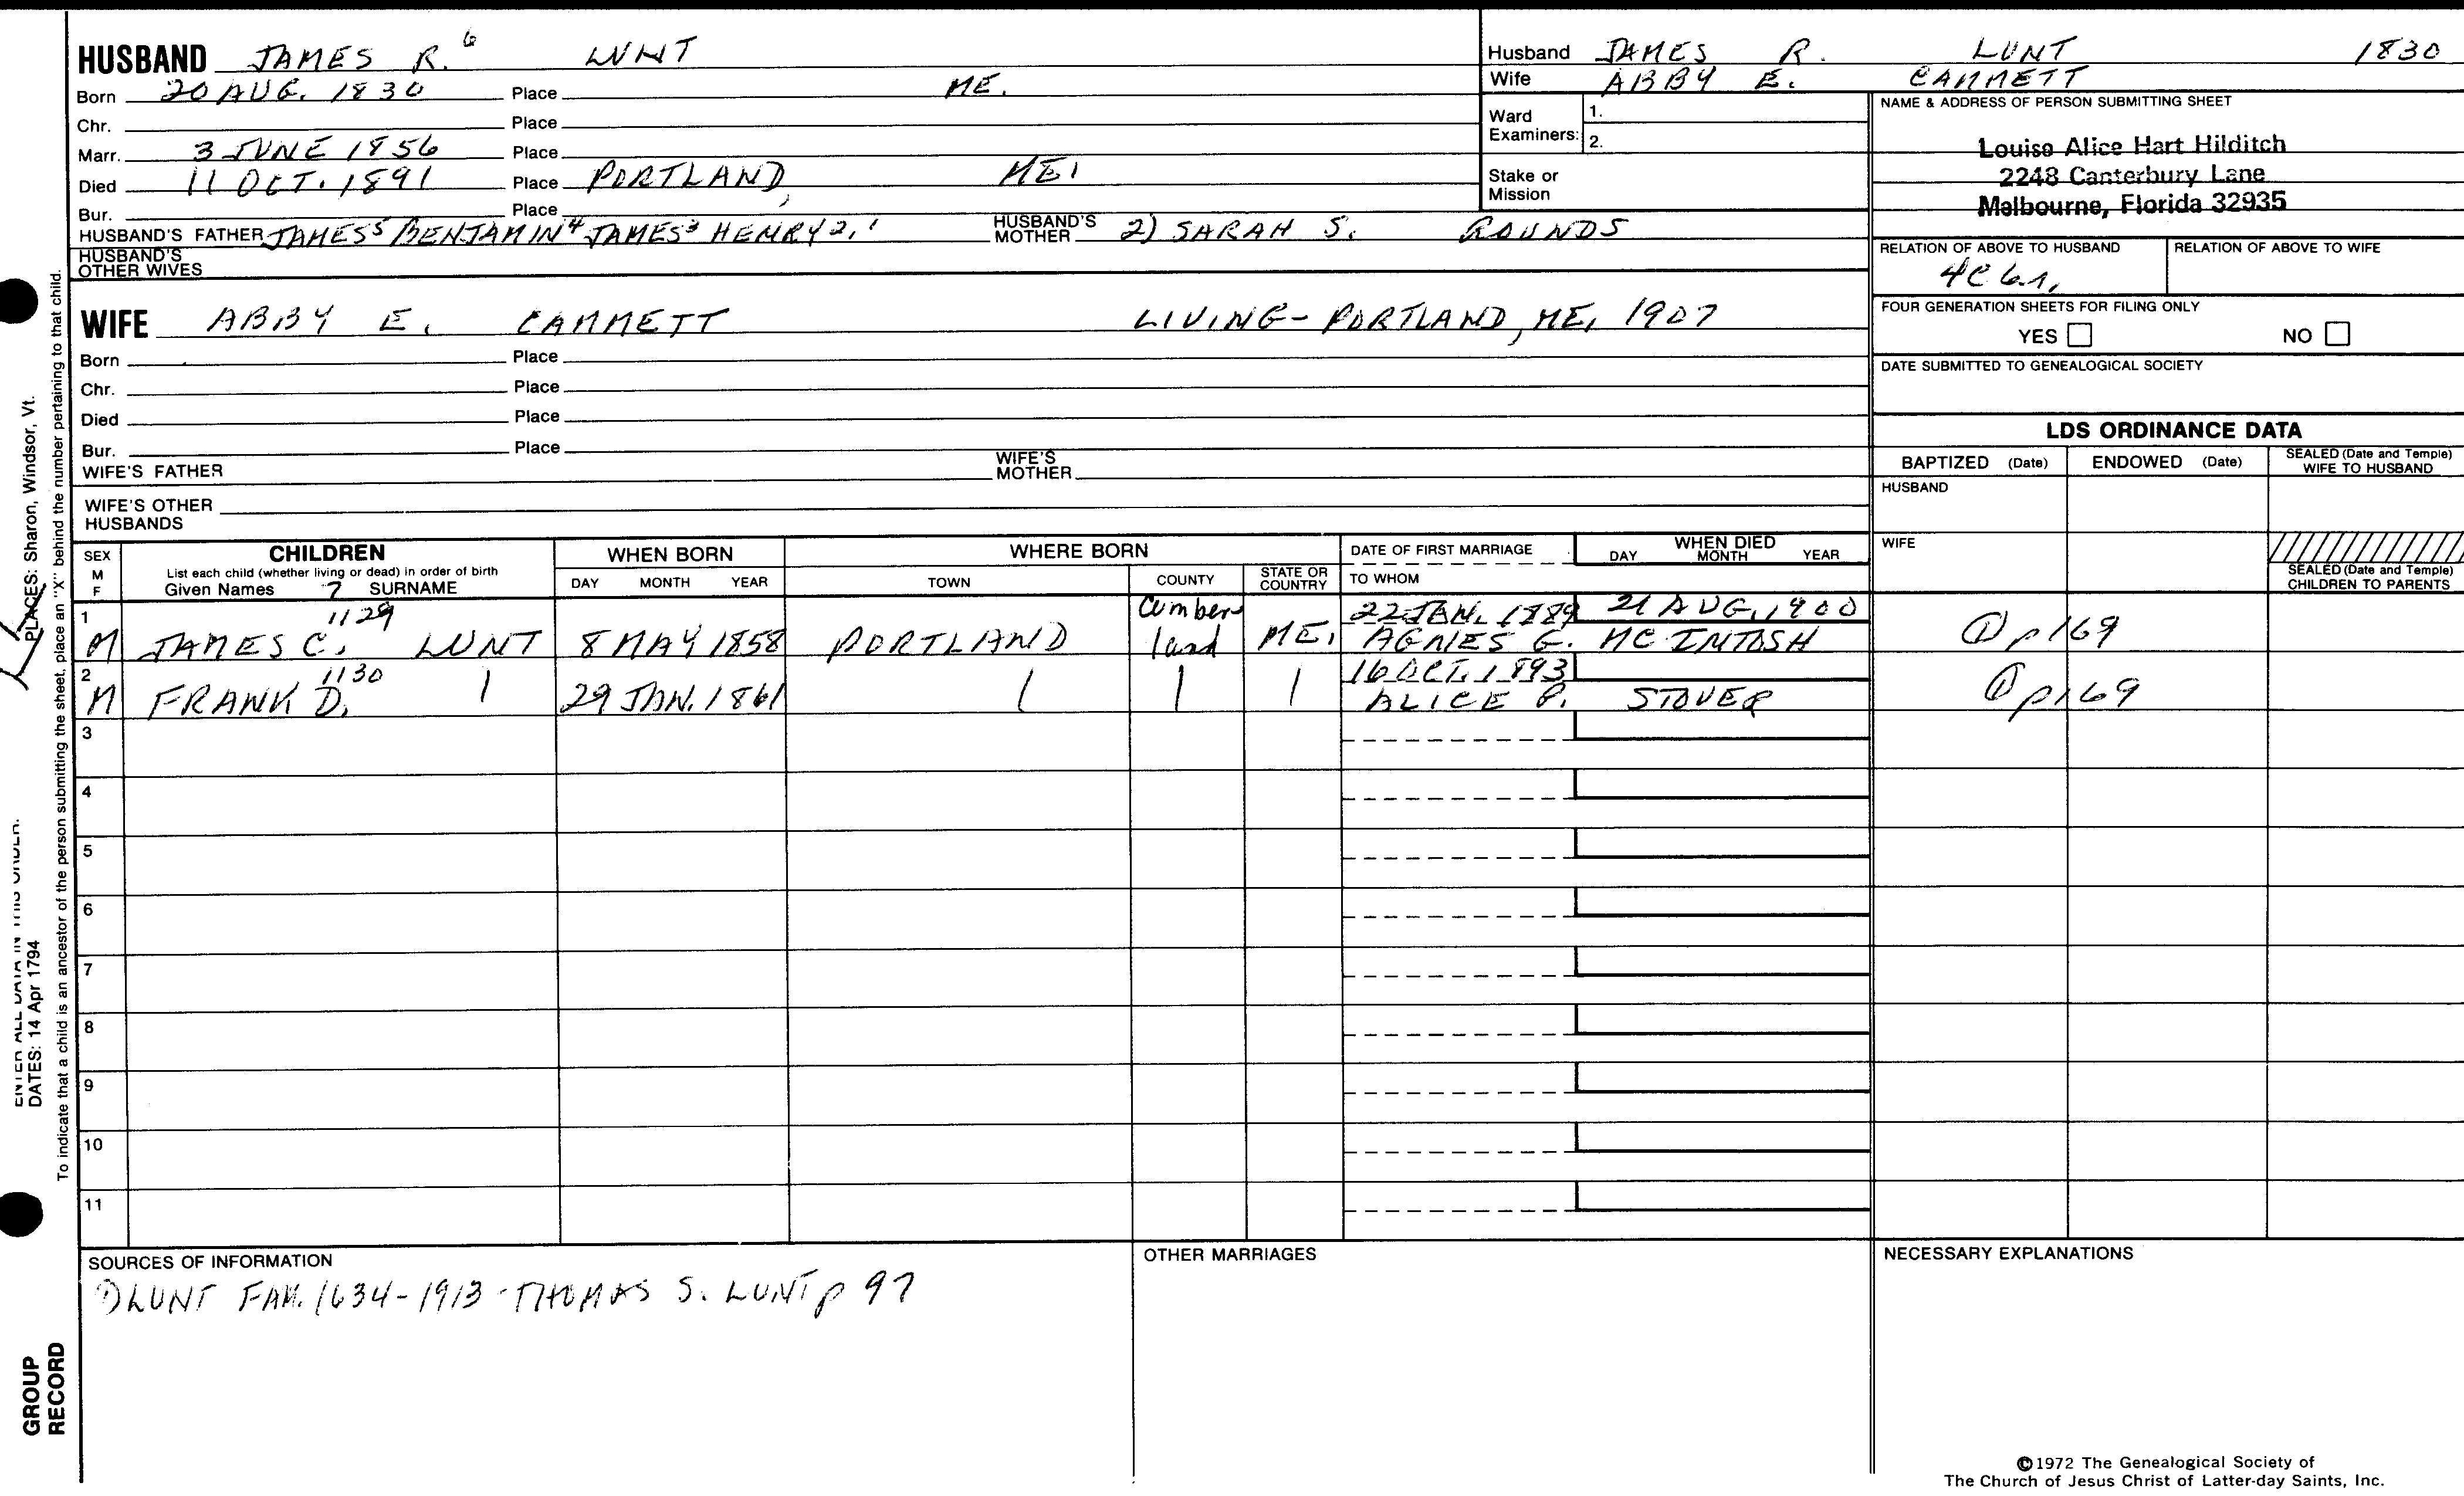 HUSBAND JAMES R.⁶ LUNT
Born 20 AUG. 1830 Place ME.
Chr. Place
Marr. 3 JUNE 1856 Place
Died 11 OCT. 1891 Place PORTLAND, ME.
Bur. Place
HUSBAND'S FATHER JAMES⁵ BENJAMIN⁴ JAMES³ HENRY²,¹ HUSBAND'S MOTHER 2) SARAH S. ROUNDS
HUSBAND'S OTHER WIVES
WIFE ABBY E. CAMMETT LIVING - PORTLAND, ME, 1907
Born Place
Chr. Place
Died Place
Bur. Place
WIFE'S FATHER WIFE'S MOTHER
WIFE'S OTHER HUSBANDS
Husband JAMES R. LUNT 1830
Wife ABBY E. CAMMETT
Ward Examiners: 1.
2.
Stake or Mission
NAME & ADDRESS OF PERSON SUBMITTING SHEET
Louise Alice Hart Hilditch
2248 Canterbury Lane
Melbourne, Florida 32935
RELATION OF ABOVE TO HUSBAND RELATION OF ABOVE TO WIFE
4C
FOUR GENERATION SHEETS FOR FILING ONLY
YES NO
DATE SUBMITTED TO GENEALOGICAL SOCIETY
LDS ORDINANCE DATA
BAPTIZED (Date) ENDOWED (Date) SEALED (Date and Temple) WIFE TO HUSBAND
HUSBAND
WIFE
SEALED (Date and Temple) CHILDREN TO PARENTS
SEX M F CHILDREN WHEN BORN WHERE BORN DATE OF FIRST MARRIAGE WHEN DIED
List each child (whether living or dead) in order of birth
Given Names 7 SURNAME DAY MONTH YEAR TOWN COUNTY STATE OR COUNTRY TO WHOM DAY MONTH YEAR
1 1129 Cumber 22 JAN. 1889 21 AUG, 1900
M JAMES C. LUNT 8 MAY 1858 PORTLAND land ME. AGNES G. MC INTOSH ① p 169
2 1130 16 OCT. 1893
M FRANK D. 29 JAN. 1861 ALICE P. STOVER ① p 169
3
4
5
6
7
8
9
10
11
SOURCES OF INFORMATION
① LUNT FAM. 1634-1913 - THOMAS S. LUNT p 97
OTHER MARRIAGES
NECESSARY EXPLANATIONS
©1972 The Genealogical Society of
The Church of Jesus Christ of Latter-day Saints, Inc.
PLACES: Sharon, Windsor, Vt.
ENTER ALL DATA IN THIS ORDER.
DATES: 14 Apr 1794
To indicate that a child is an ancestor of the person submitting the sheet, place an "X" behind the number pertaining to that child.
GROUP
RECORD